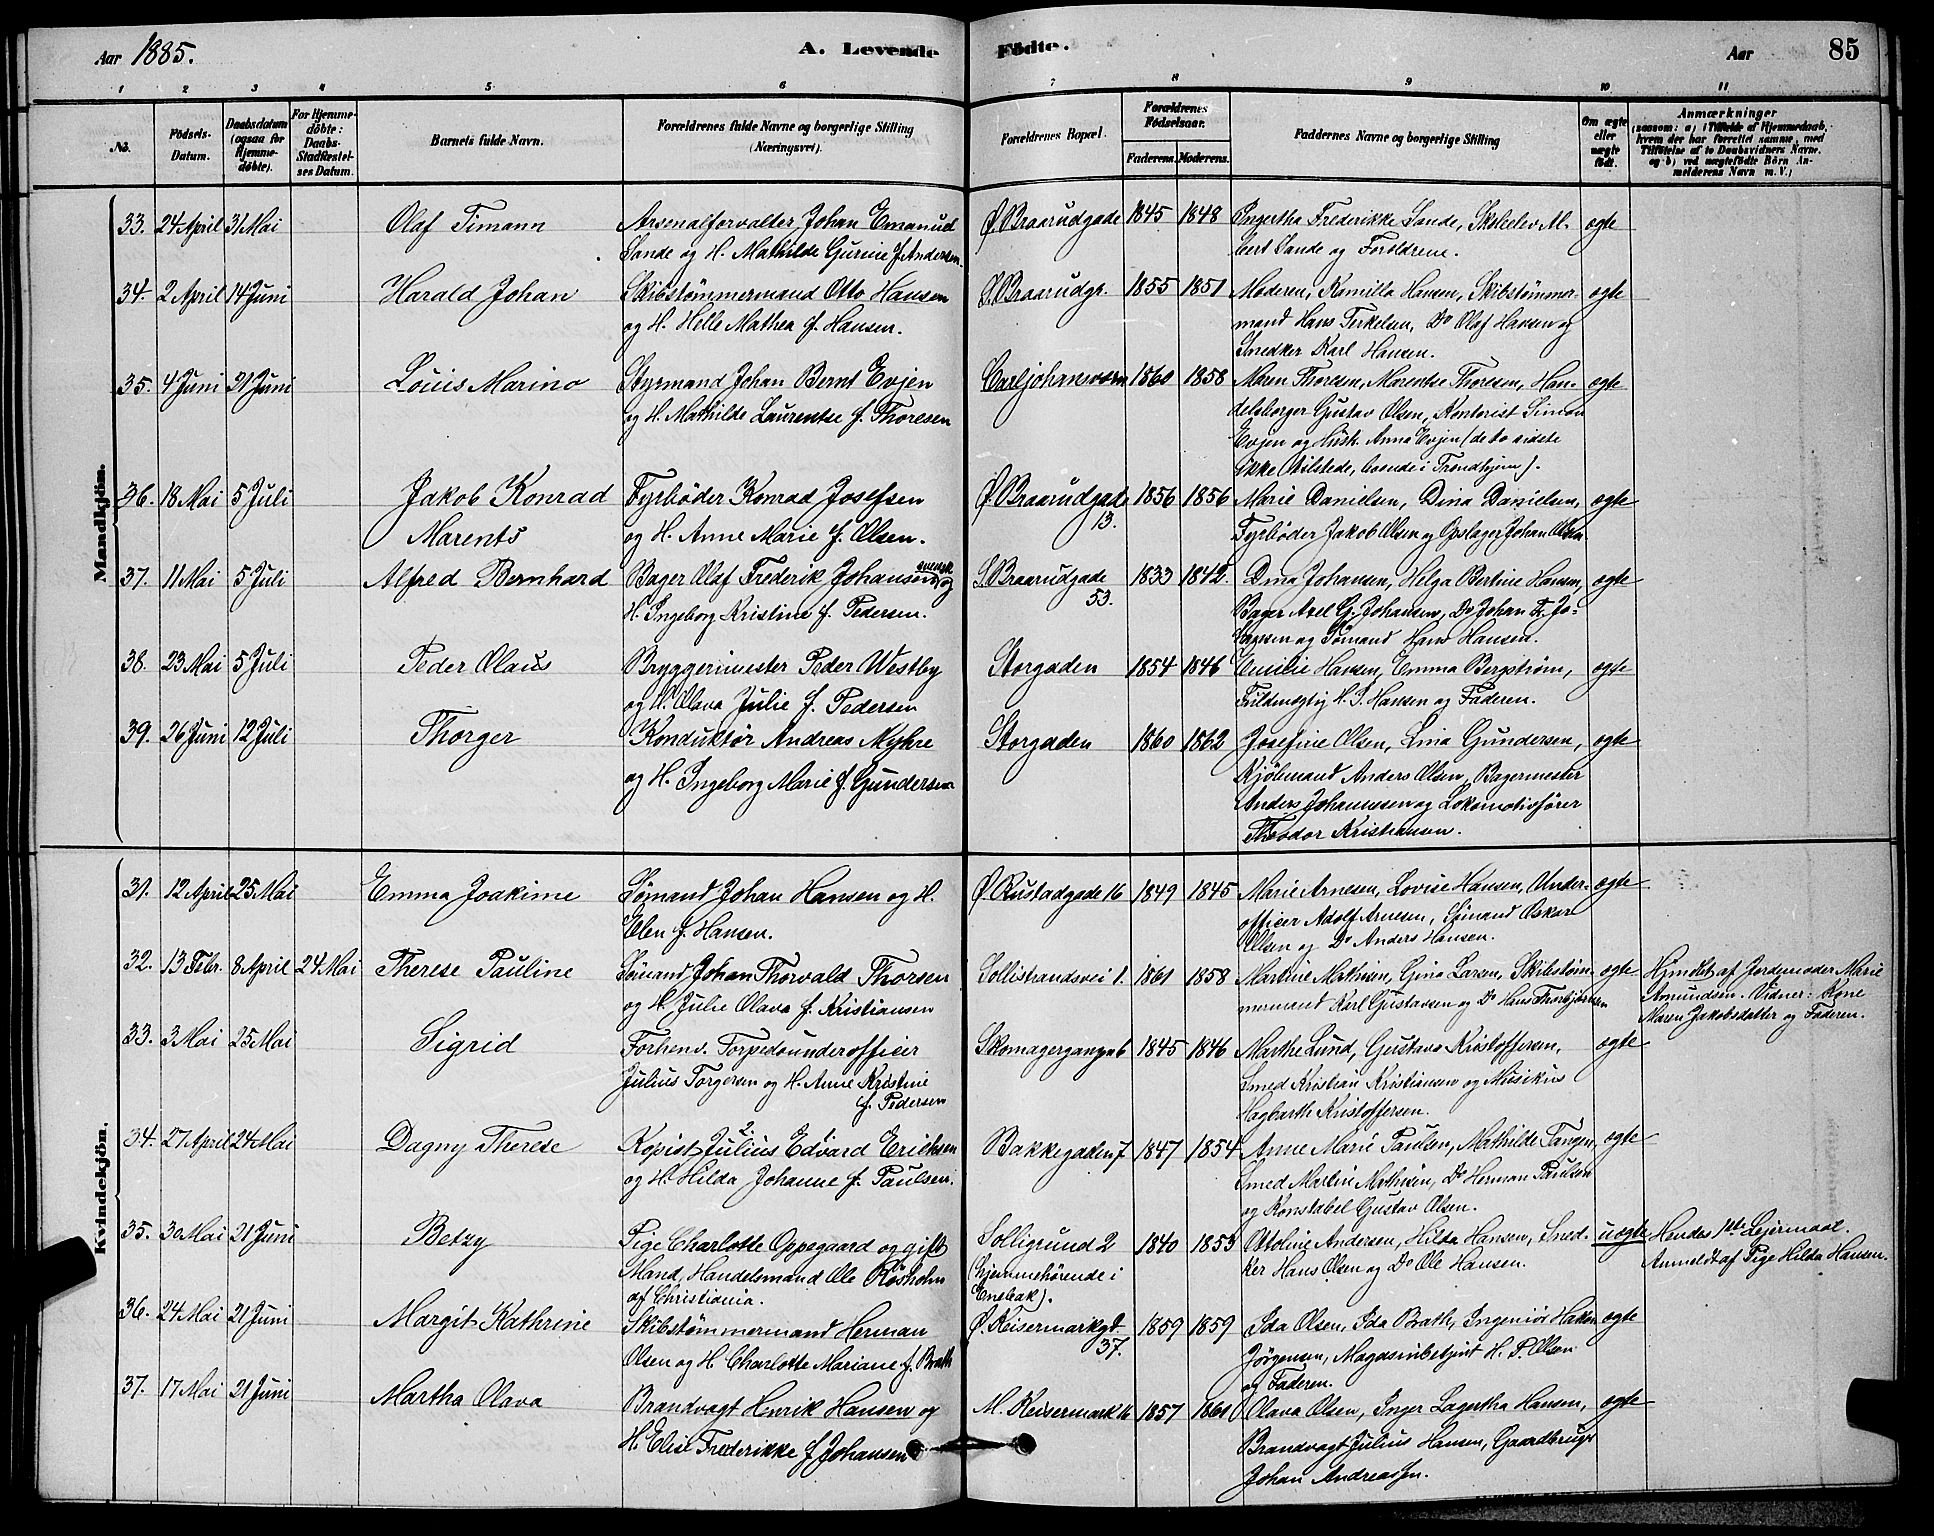 Aar 1885.
A. Levende Födte.
Aar
85
1 2 3 4 5 6 7 8 9 10 11
No.
Födsels-Datum.
Daabsdatum (ogsaa for Hjemme-döbte).
For Hjemme-döbte: Daabs-Stadfæstel-ses Datum.
Barnets fulde Navn.
Forældrenes fulde Navne og borgerlige Stilling (Næringsvei).
Forældrenes Bopæl.
Forældrenes Födselsaar.
Faderens. Moderens.
Faddernes Navne og borgerlige Stilling
Om ægte eller uægte födt.
Anmærkninger
(saasom: a) i Tilfælde af Hjemmedaab,
hvem der har forrettet samme, med
Tilföielse af to Daabsvidners Navne.
og b) ved uægtefödte Börn An-
melderens Navn m. V.;
Mandkjön.
33. 24 April 31 Mai Olaf Timann Arsenalforvalter Johan Emanuel Ø. Braarudgade 1845 1848 Ingertha Frederikke Sande, Skoleelev Al- ægte
Sande og H. Mathilde Gurine f. Andersen.
bert Sande og Forældrene.
34. 2 April 14 Juni Harald Johan Skibstømmermand Otto Hansen Ø. Braarudgr. 1855 1851 Moderen, Kamilla Hansen, Skibstømmer- ægte
og H. Helle Mathea f. Hansen.
mand Hans Terkelsen, Do Olaf Hansen og
Snedker Karl Hansen.
35. 4 Juni 21 Juni Louis Marino Styrmand Johan Bernt Evjen Carljohansværn 1860 1858 Maren Thoresen, Marentse Thoresen, Han- ægte
og H. Mathilde Laurentse f. Thoresen
delsborger Gustav Olsen, Kontorist Simon
Evjen og Hustr. Anna Evjen (de to sidste
ikke tilstede, boende i Trondhjem).
36. 18 Mai 5 Juli Jakob Konrad Fyrbøder Konrad Josefsen Ø. Braarudgade 1856 1856 Marie Danielsen, Dina Danielsen, ægte
Marents og H. Anne Marie f. Olsen. 13. Fyrbøder Jakob Olsen og Opslager Johan Olsen
37. 11 Mai 5 Juli Alfred Bernhard Bager Olaf Frederik Johansen svensk og S. Braarudgade 1833 1842. Dina Johansen, Helga Bertine Hansen, ægte
H. Ingeborg Kristine f. Pedersen. 53. Bager Axel G. Johansen, Do Johan F. Jo-
hansen og Sømand Hans Hansen.
38. 23 Mai 5 Juli Peder Olaus Bryggerimester Peder Westby Storgaden 1854 1846 Emilie Hansen, Emma Bergstrøm, ægte
og H. Olava Julie f. Pedersen
Fuldmægtig H. P. Hansen og Faderen.
39. 26 Juni 12 Juli Thorger Konduktør Andreas Myhre Storgaden 1860 1862 Josefine Olsen, Lina Gundersen, ægte
og H. Ingeborg Marie f. Gundersen
Kjøbmand Anders Olsen, Bagermester
Anders Johannesen og Lokomotivfører
Theodor Kristiansen.
Kvindekjön.
31. 12 April 25 Mai Emma Joakime Sømand Johan Hansen og H. Ø. Rustadgade 16 1849 1845 Marie Arnesen, Lovise Hansen, Under- ægte
Elen f. Hansen.
officer Adolf Arnesen, Sømand Oskar
Olsen og Do Anders Hansen.
32. 13 Febr. 8 April 24 Mai Therese Pauline Sømand Johan Thorvald Thorsen Sollistrandsvei 1. 1861 1858 Martine Mathisen, Gina Larsen, Skibstøm- ægte Hjmdbt af Jordemoder Marie
og H. Julie Olava f. Kristiansen
mermand Karl Gustavsen og Do Hans Thorbjørnsen
Amundsen. Vidner: Kone
Maren Jakobsdatter og Faderen.
33. 3 Mai 25 Mai Sigrid Forhenv. Torpedounderofficer Skomagergangen 6 1845 1846 Marthe Lund, Gustava Kristoffersen, ægte
Julius Torgersen og H. Anne Kristine
f. Pedersen
Smed Kristian Kristiansen og Musikus
Hagbarth Kristoffersen.
34. 27 April 24 Mai Dagny Therese Kopist Julius Edvard Erichsen Bakkegaden 7 1847 1854 Anne Marie Paulsen, Mathilde Tangen ægte
2.
og H. Hilda Johanne f. Paulsen.
Smed Martin Mathisen, Do Herman Paulsen
og Konstabel Gustav Olsen.
35. 30 Mai 21 Juni Betzy Pige Charlotte Oppegaard og gift Solligrund 2 1840 1853 Ottoline Andersen, Hilda Hansen, Sned- uægte Hendes 1ste Leiermaal.
Mand, Handelsmand Ole Røsholm (hjemmehørende i ker Hans Olsen og Do Ole Hansen. Anmeldt af Pige Hilda Hansen.
af Christiania. Enebak).
36. 24 Mai 21 Juni Margit Kathrine Skibstømmermand Herman Ø. Keisermarkgd. 1859 1859 Ida Olsen, Ida Brath, Ingeniør Hakon ægte
Olsen og H. Charlotte Mariane f. Brath 37. Jørgensen, Magasinbetjent H. P. Olsen
og Faderen.
37. 17 Mai 21 Juni Martha Olava Brandvagt Henrik Hansen og M. Keisermark 16 1857 1861 Olava Olsen, Inger Lagertha Hansen, ægte
H. Elise Frederikke f. Johansen
Brandvagt Julius Hansen, Gaardbruger
Johan Andreassen.